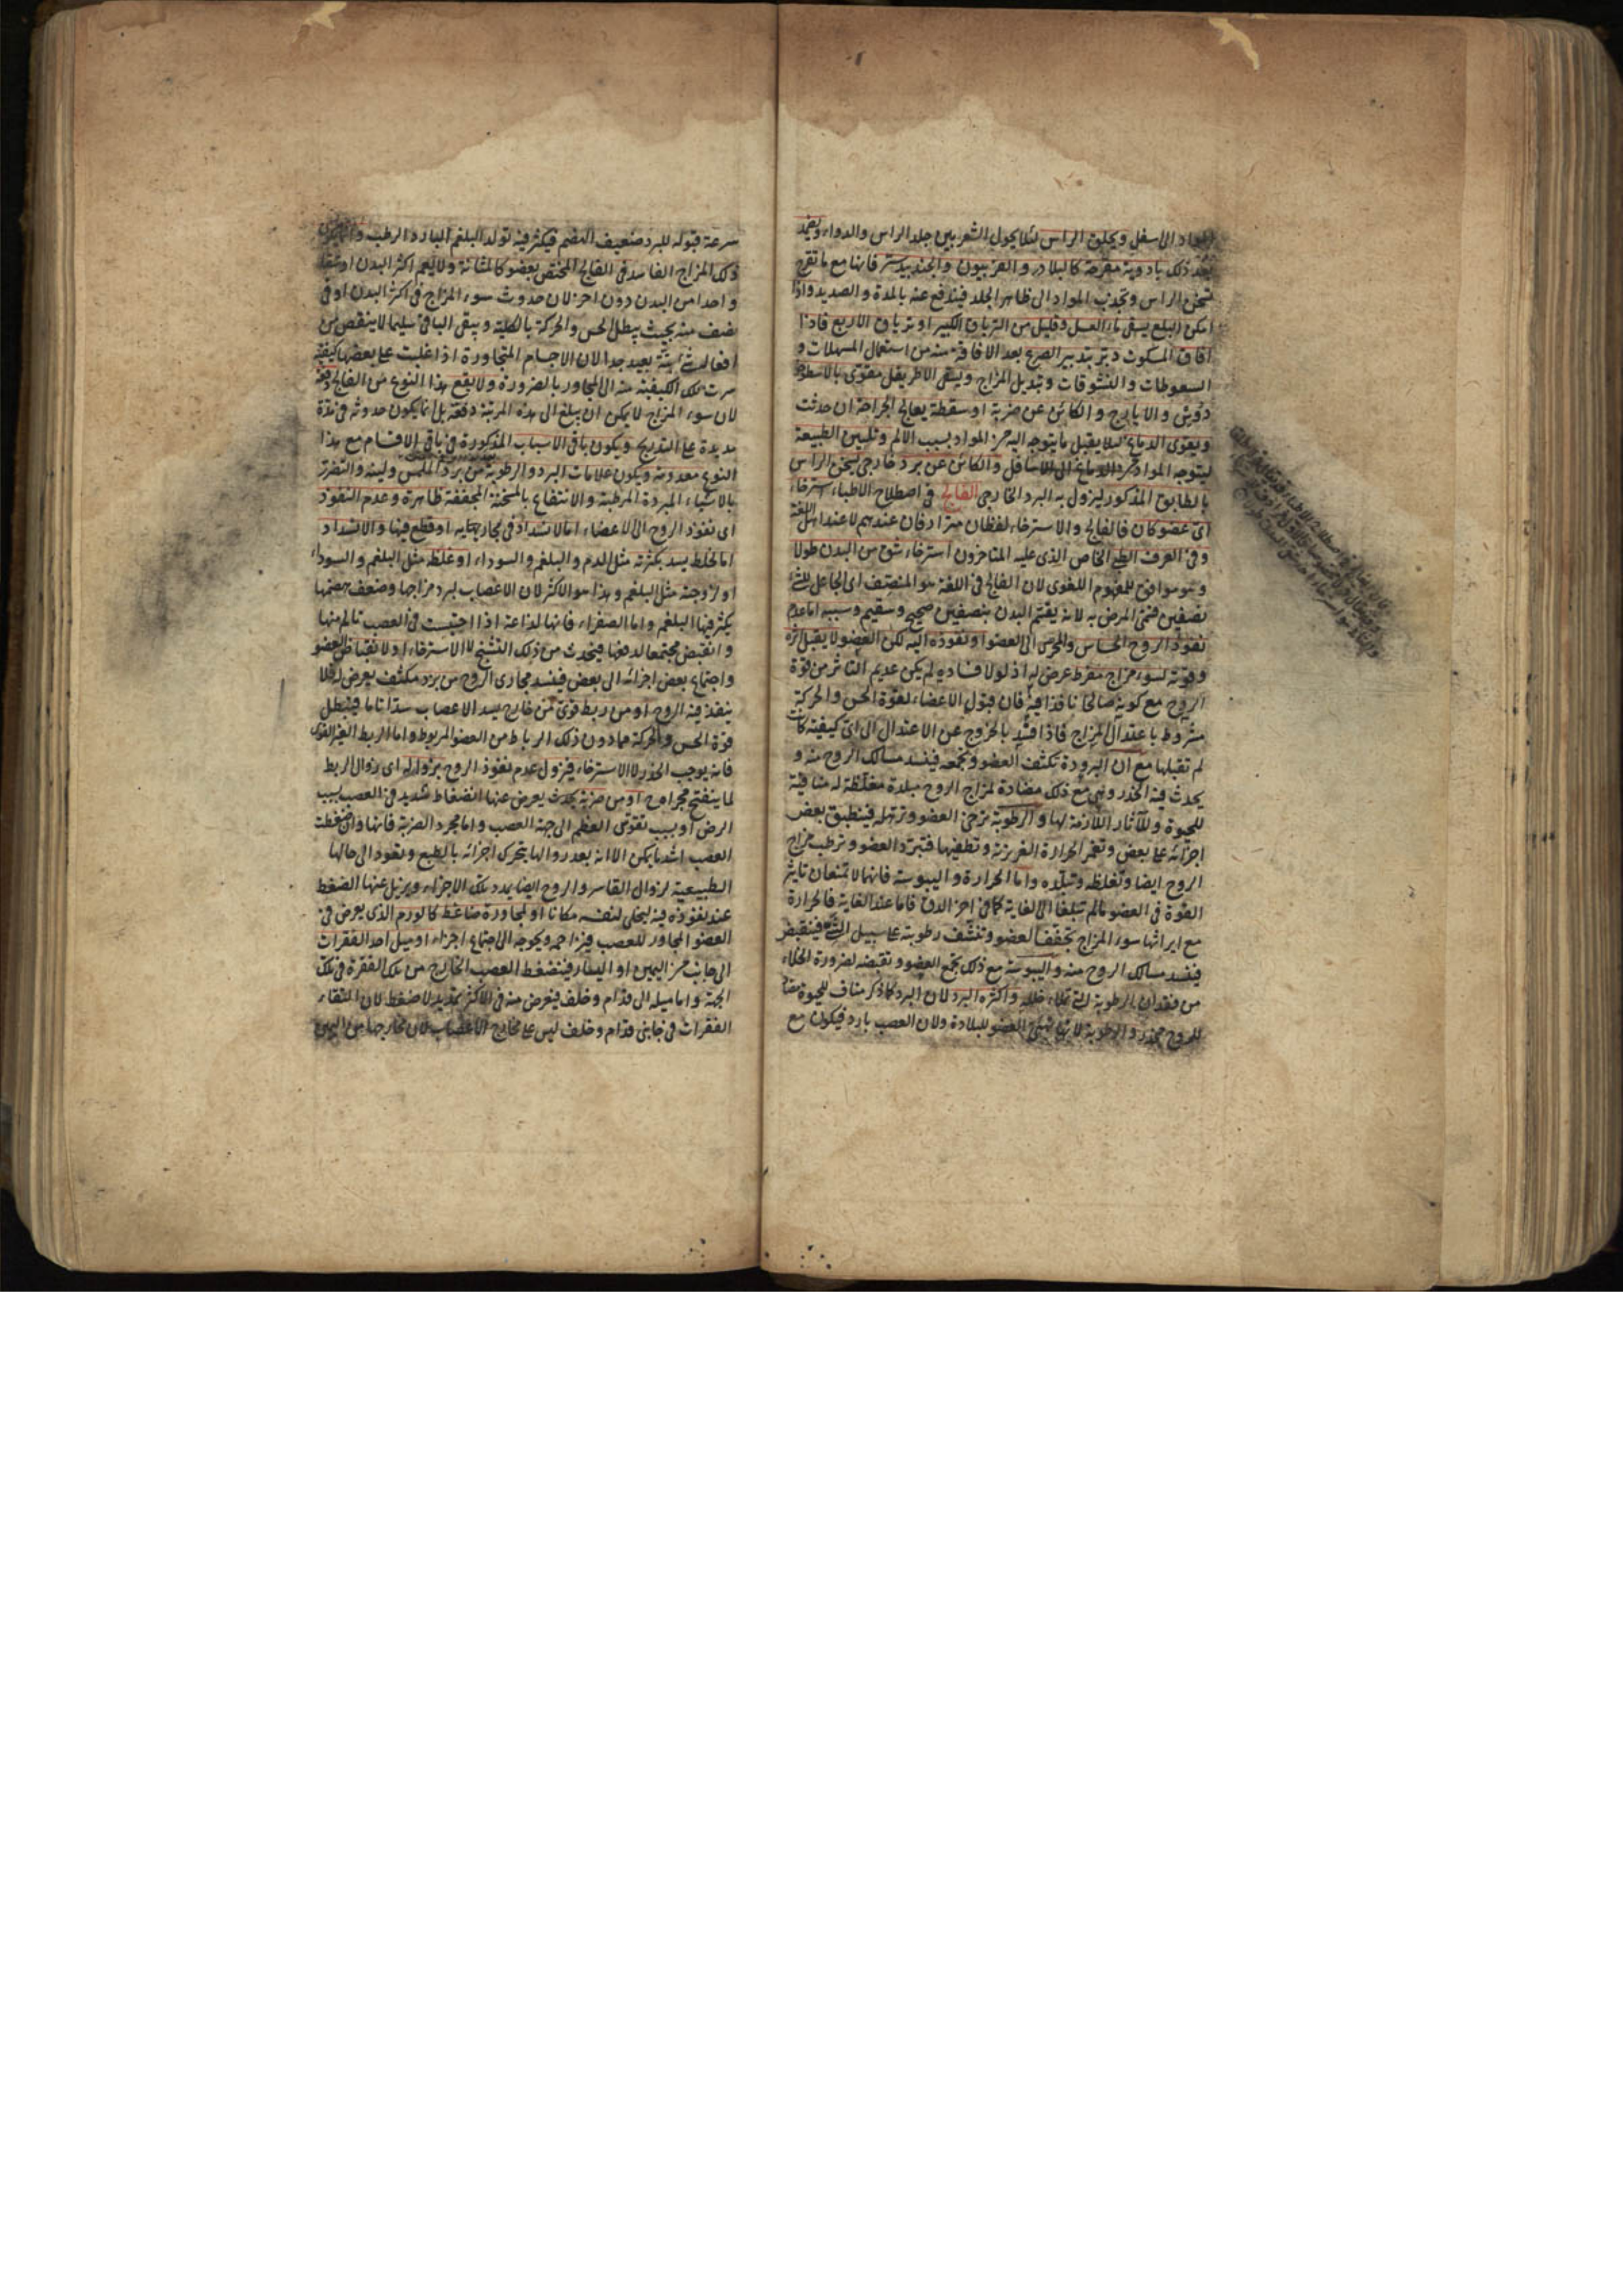 المواد الى اسفل ويحلق الراس لئلا يحول الشعر بين جلد الراس والدواء ويضمد
بعد ذلك بادوية مقرحة كالبلادر والفربيون والجندبيدستر فانها مع ما تقرح
تسخن الراس وتجذب المواد الى ظاهر الجلد فيندفع عنه بالمدة والصديد واذا
امكن البلع يسقى ماء العسل وقليل من الترياق الكبير او ترياق الاربع فاذا
افاق المسكوت دبر بتدبير الصرع بعد الافاقة منه من استعمال المسهلات و
السعوطات والنشوقات وتبديل المزاج ويسقى الاطريفل مقوى بالاسطوخو
دوس والايارج والكائن عن ضربة او سقطة يعالج الجراحة ان حدثت
ويقوى الدماغ لئلا يقبل ما يتوجه اليه من المواد بسبب الالم وتليين الطبيعة
ليتوجه المواد من الدماغ الى الاسافل والكائن عن برد خارجى يسخن الراس
بالطابق المذكور ليزول به البرد الخارجى الفالج فى اصطلاح الاطباء استرخاء
اى عضو كان فالفالج والاسترخاء لفظان مترادفان عندهم لا عند اهل اللغة
وفى العرف الطبى الخاص الذى عليه المتاخرون استرخاء شق من البدن طولا
وهو موافق للمفهوم اللغوى لان الفالج فى اللغة هو المنصف اى الجاعل للشئ
نصفين فسمى المرض به لانه يقسم البدن بنصفين صحيح وسقيم وسببه اما عدم
نفوذ الروح الحساس والمحرك الى العضو او نفوذه اليه لكن العضو لا يقبل اثره
وقوته لسوء مزاج مفرط عرض له اذ لولا فساده لم يكن عديم التاثر من قوة
الروح مع كونه صالحا نافذا فيه فان قبول الاعضاء لقوة الحس والحركة
مشروط باعتدال المزاج فاذا افسد بالخروج عن الاعتدال الى اى كيفية كانت
لم تقبلها مع ان البرودة تكثف العضو وتجمعه فينسد مسالك الروح منه و
يحدث فيه الخدر وهى مع ذلك مضادة لمزاج الروح مبلدة مغلظة له منافية
للحيوة وللآثار اللازمة لها والرطوبة ترخى العضو وترهله فينطبق بعض
اجزائه على بعض وتغمر الحرارة الغريزية وتطفيها فتبرد العضو وترطب مزاج
الروح ايضا وتغلظه وتبلده واما الحرارة واليبوسة فانهما لا تمنعان تاثير
القوة فى العضو ما لم تبلغا الى الغاية كما فى اخر الدق فاما عند الغاية فالحرارة
مع ايراثها سوء المزاج تجفف العضو وتنشف رطوبته على سبيل فينقبض
فينسد مسالك الروح منه واليبوسة مع ذلك تجمع العضو وتقبضه لضرورة الخلاء
من فقدان الرطوبة التى تملاء خلله واكثره البرد لان البرد كما ذكر مناف للحيوة مضاد
للروح مخدر والرطوبة لانها تهيئ العضو للبلادة ولان العصب بارد فيكون مع
سرعة قبوله للبرد ضعيف الهضم فيكثر فيه تولد البلغم البارد الرطب وانما يكون
ذلك المزاج الفاسد فى الفالج المختص بعضو كالمثانة ولا يعم اكثر البدن او شقا
واحدا من البدن دون اخر لان حدوث سوء المزاج فى اكثر البدن او فى
نصف منه بحيث يبطل الحس والحركة بالكلية ويبقى الباقى سليما لا ينقص من
افعاله شئ البتة بعيد جدا لان الاجسام المتجاورة اذا غلبت على بعضها كيفية
سرت تلك الكيفية منه الى المجاور بالضرورة ولا يقع هذا النوع من الفالج دفعة
لان سوء المزاج لا يمكن ان يبلغ الى هذه المرتبة دفعة بل انما يكون حدوثه فى مدة
مديدة على التدريج ويكون باقى الاسباب المذكورة فى باقى الاقسام مع هذا
النوع معدومة ويكون علامات البرد والرطوبة من برد الملمس ولينه والتضرر
بالاشياء المبردة المرطبة والانتفاع بالمسخنة المجففة ظاهرة وعدم النفوذ
اى نفوذ الروح الى الاعضاء اما لانسداد فى مجاريه او قطع فيها والانسداد
اما لخلط يسد بكثرته مثل الدم والبلغم والسوداء او غلظه مثل البلغم والسوداء
او لزوجته مثل البلغم وهذا هو الاكثر لان الاعصاب لبرد مزاجها وضعف هضمها
يكثر فيها البلغم واما الصفراء فانها لذاعة اذا احتبست فى العصب تالم منها
وانقبض مجتمعا لدفعها فيحدث من ذلك التشنج لا الاسترخاء او لانقباض العضو
واجتماع بعض اجزائه الى بعض فينسد مجارى الروح من برد مكثف يعرض له فلا
ينفذ فيه الروح او من ربط قوى من خارج يسد الاعصاب سدا تاما فيبطل
قوة الحس والحركة عما دون ذلك الرباط من العضو المربوط واما الربط الغير القوى
فانه يوجب الخدر لا الاسترخاء فيزول عدم نفوذ الروح بزواله اى زوال الربط
لما ينفتح مجراه او من ضربة يحدث يعرض عنها انضغاط شديد فى العصب بسبب
الرض او بسبب تقوس العظم الى جهة العصب واما مجرد الضربة فانها وان ضغطت
العصب اشد ما يكن الا انه بعد زوالها يتحرك اجزائه بالطبع وتعود الى حالها
الطبيعية لزوال القاسر والروح ايضا يمدد تلك الاجزاء ويزيل عنها الضغط
عند نفوذه فيه ليخلى لنفسه مكانا او لمجاورة ضاغط كالورم الذى يعرض فى
العضو المجاور للعصب فيزاحمه ويحوجه الى اجتماع اجزاء او ميل احد الفقرات
الى جانب من اليمين او اليسار فينضغط العصب الخارج من تلك الفقرة فى تلك
الجهة واما ميله الى قدام وخلف فيعرض منه فى الاكثر تمديد لا ضغط لان التقاء
الفقرات فى جانبى قدام وخلف ليس على مخارج الاعصاب لان مخارجها من اليمين